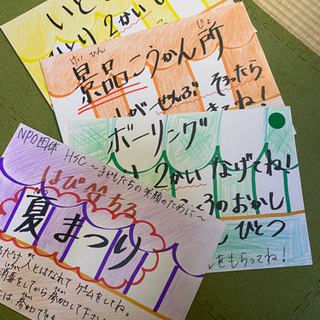 いと
ひとり2かい
けいひん じょ
景品こうかん所
しがぜんぶそろったら
きてね!
ボーリング
り2かいなげてね!
ろのおかし
ひとつ
をもらってね!
NPO団体 HSC ～子どもたちの笑顔のために～
はぴちる
夏まつり
るだけ人とはなれてゲームをしてね。
消毒をしてから参加して下さい